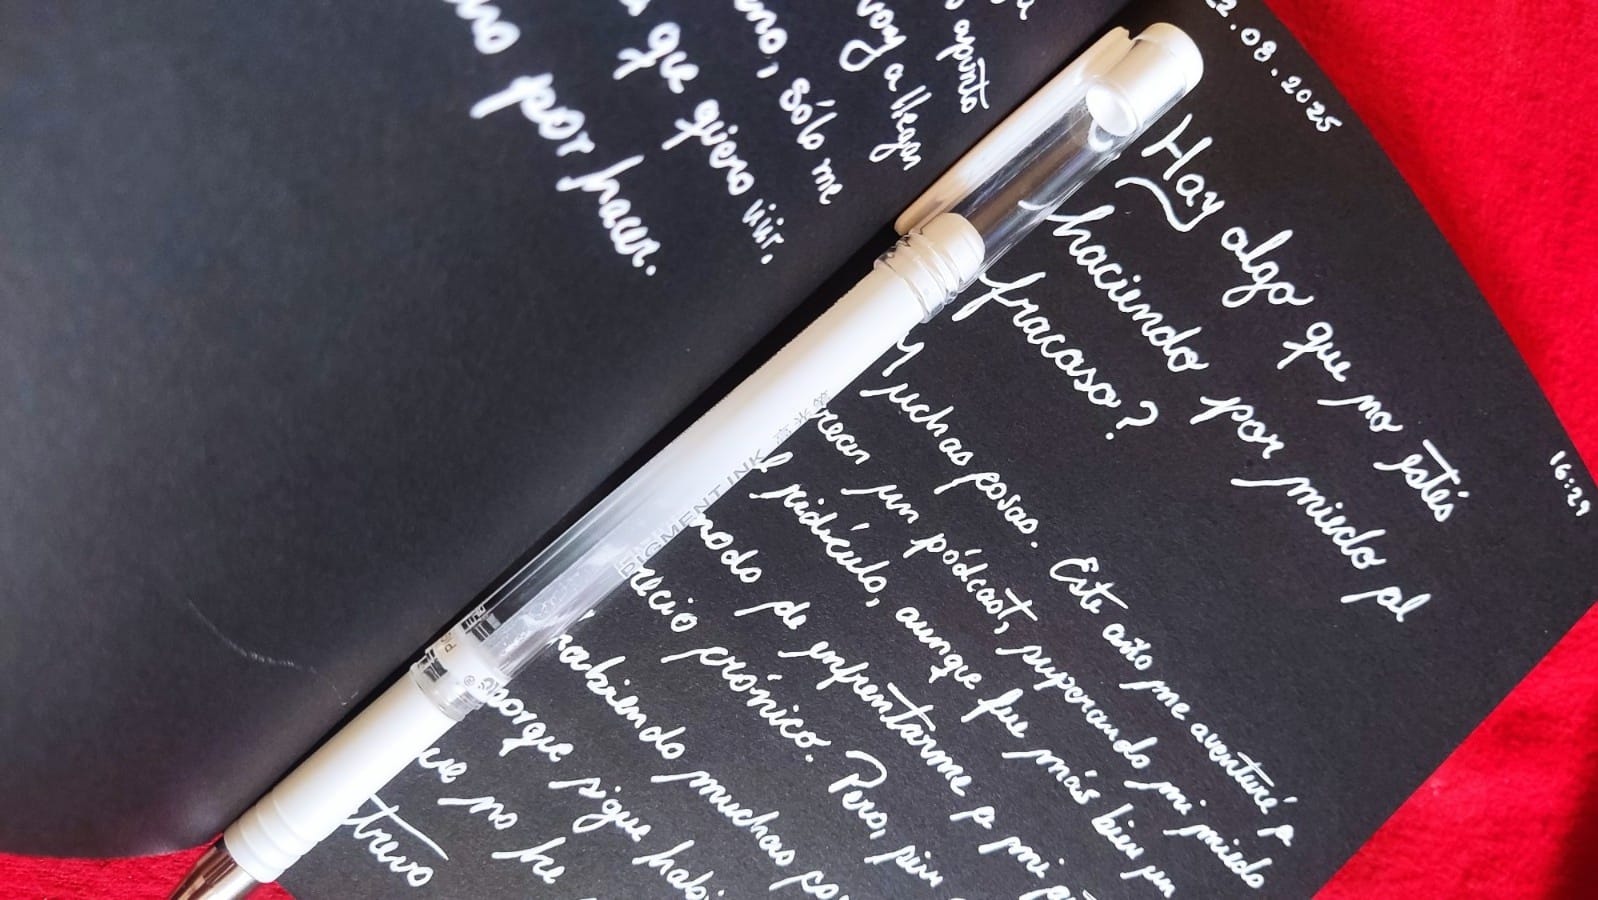 apinto
voy a llegar
sólo me
que qiero viir.
por hacer.
22.08.2025
16:29
Hay algo que no estés
haciendo por miedo al
fracaso?
Muchas cosas. Este año me aventuré a
crear un pódcast, superando mi miedo
al ridículo, aunque fue más bien un
modo de enfrentarme a mi
necio crónico. Pero, sin
habiendo muchas
porque sigue
que no he
atrevo
PIGMENT INK 高光笔